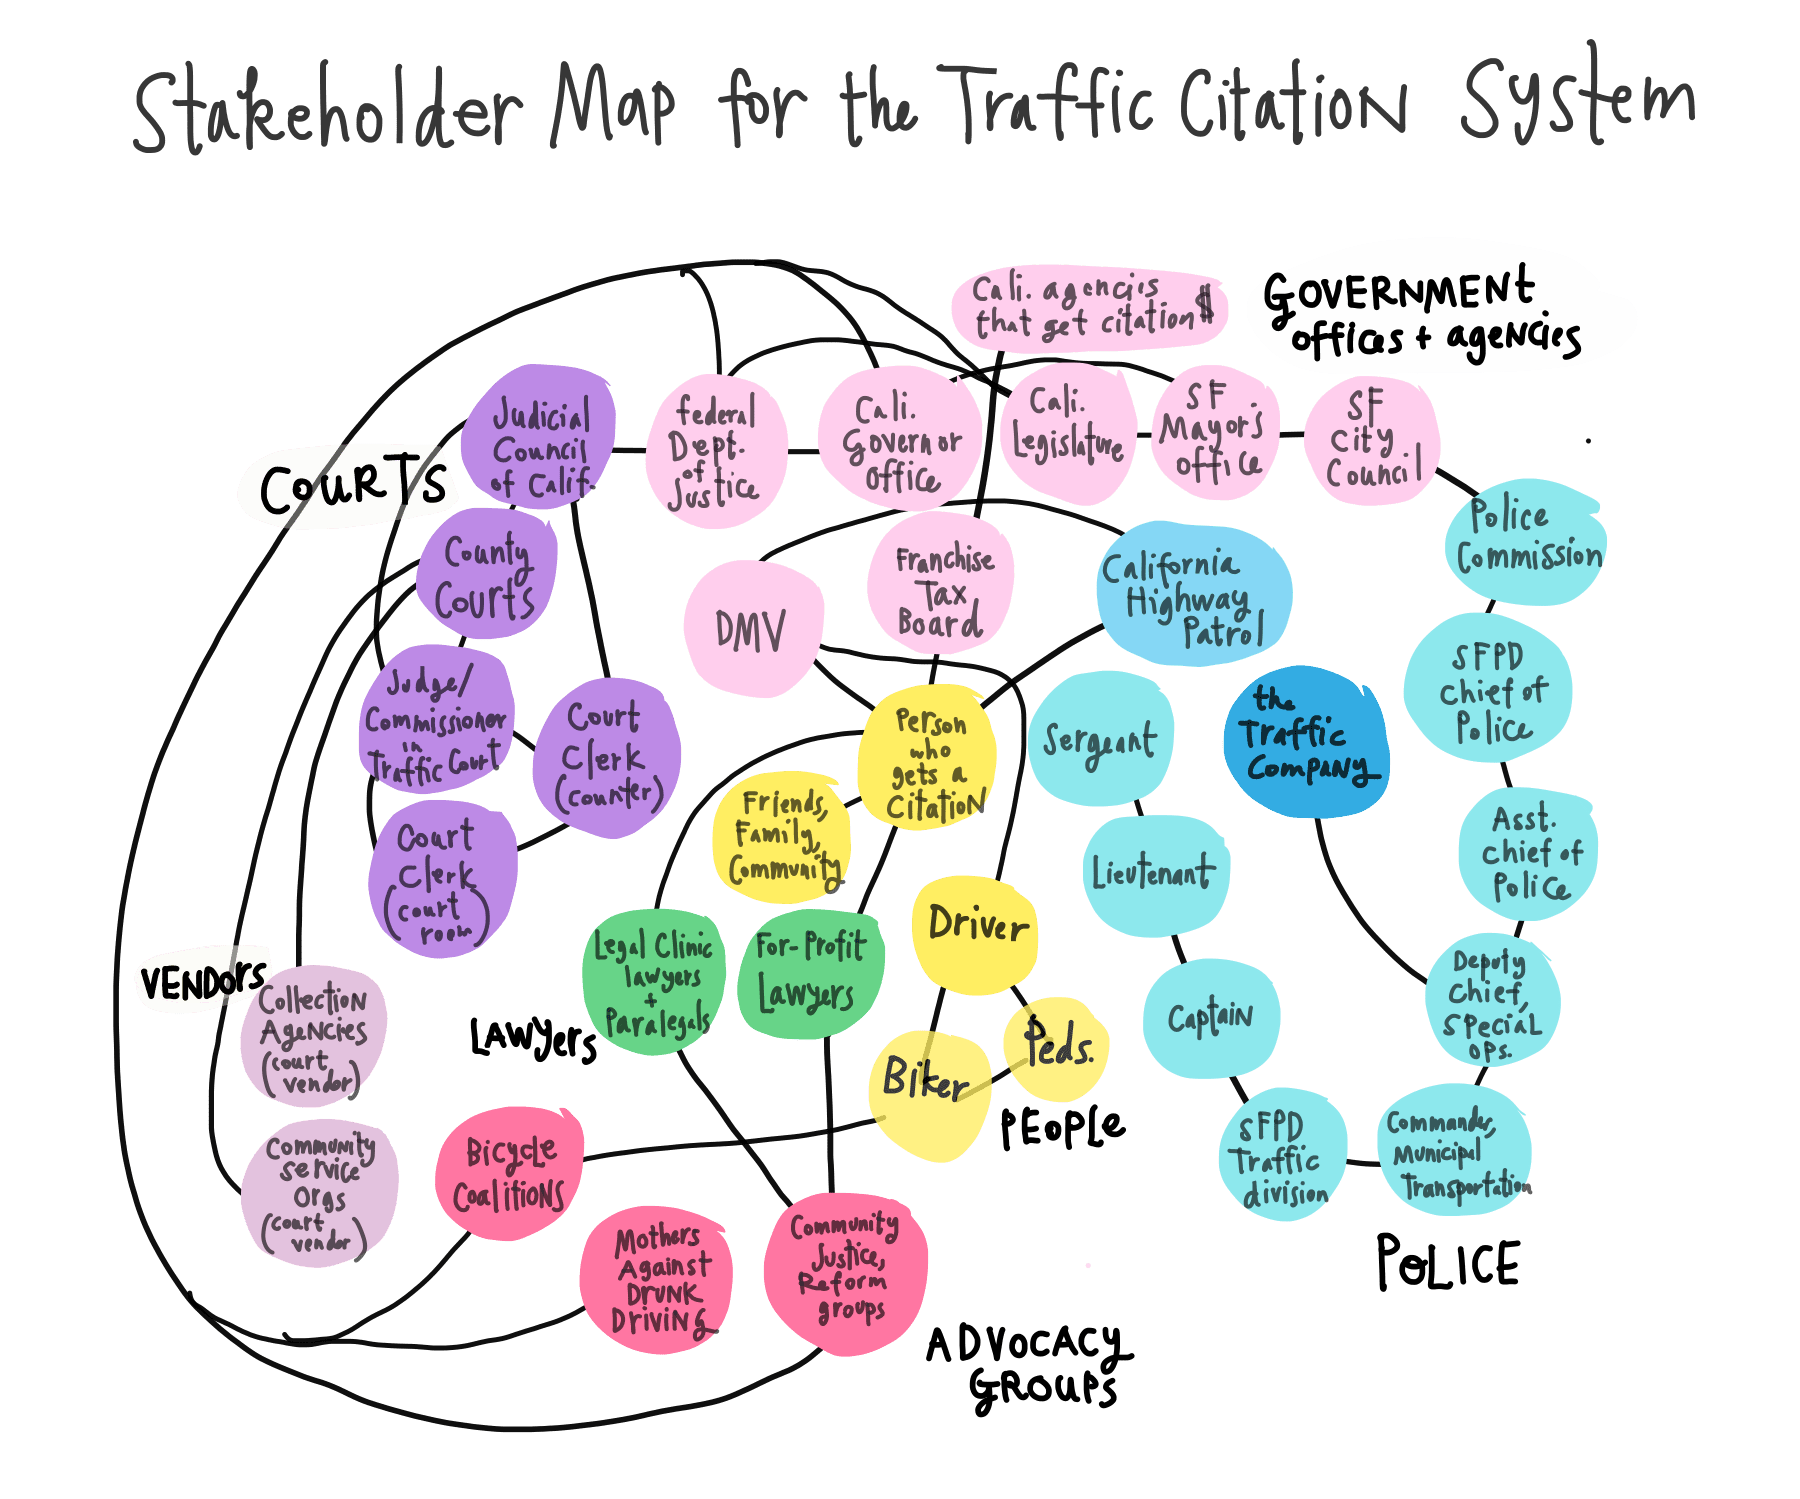 Stakeholder Map for the Traffic Citation System
Cali. agencies
that get citation $
GOVERNMENT
offices + agencies
COURTS
Judicial
Council
of Calif.
federal
Dept.
of
Justice
Cali.
Governor
office
Cali.
Legislature
SF
Mayor's
office
SF
City
Council
Police
Commission
County
Courts
DMV
Franchise
Tax
Board
California
Highway
Patrol
SFPD
chief of
Police
Judge/
Commissioner
in
Traffic Court
Court
Clerk
(counter)
Person
who
gets a
Citation
Sergeant
the
Traffic
Company
Friends,
Family,
Community
Court
Clerk
(court
room)
Lieutenant
Asst.
chief of
Police
Driver
VENDORS
Collection
Agencies
(court
vendor)
LAWYERS
Legal Clinic
lawyers
+
Paralegals
For-Profit
Lawyers
Captain
Deputy
Chief,
Special
ops.
Biker
Peds.
PEOPLE
Community
Service
Orgs
(court
vendor)
Bicycle
Coalitions
SFPD
Traffic
division
Commander,
Municipal
Transportation
POLICE
Mothers
Against
Drunk
Driving
Community
Justice,
Reform
groups
ADVOCACY
GROUPS